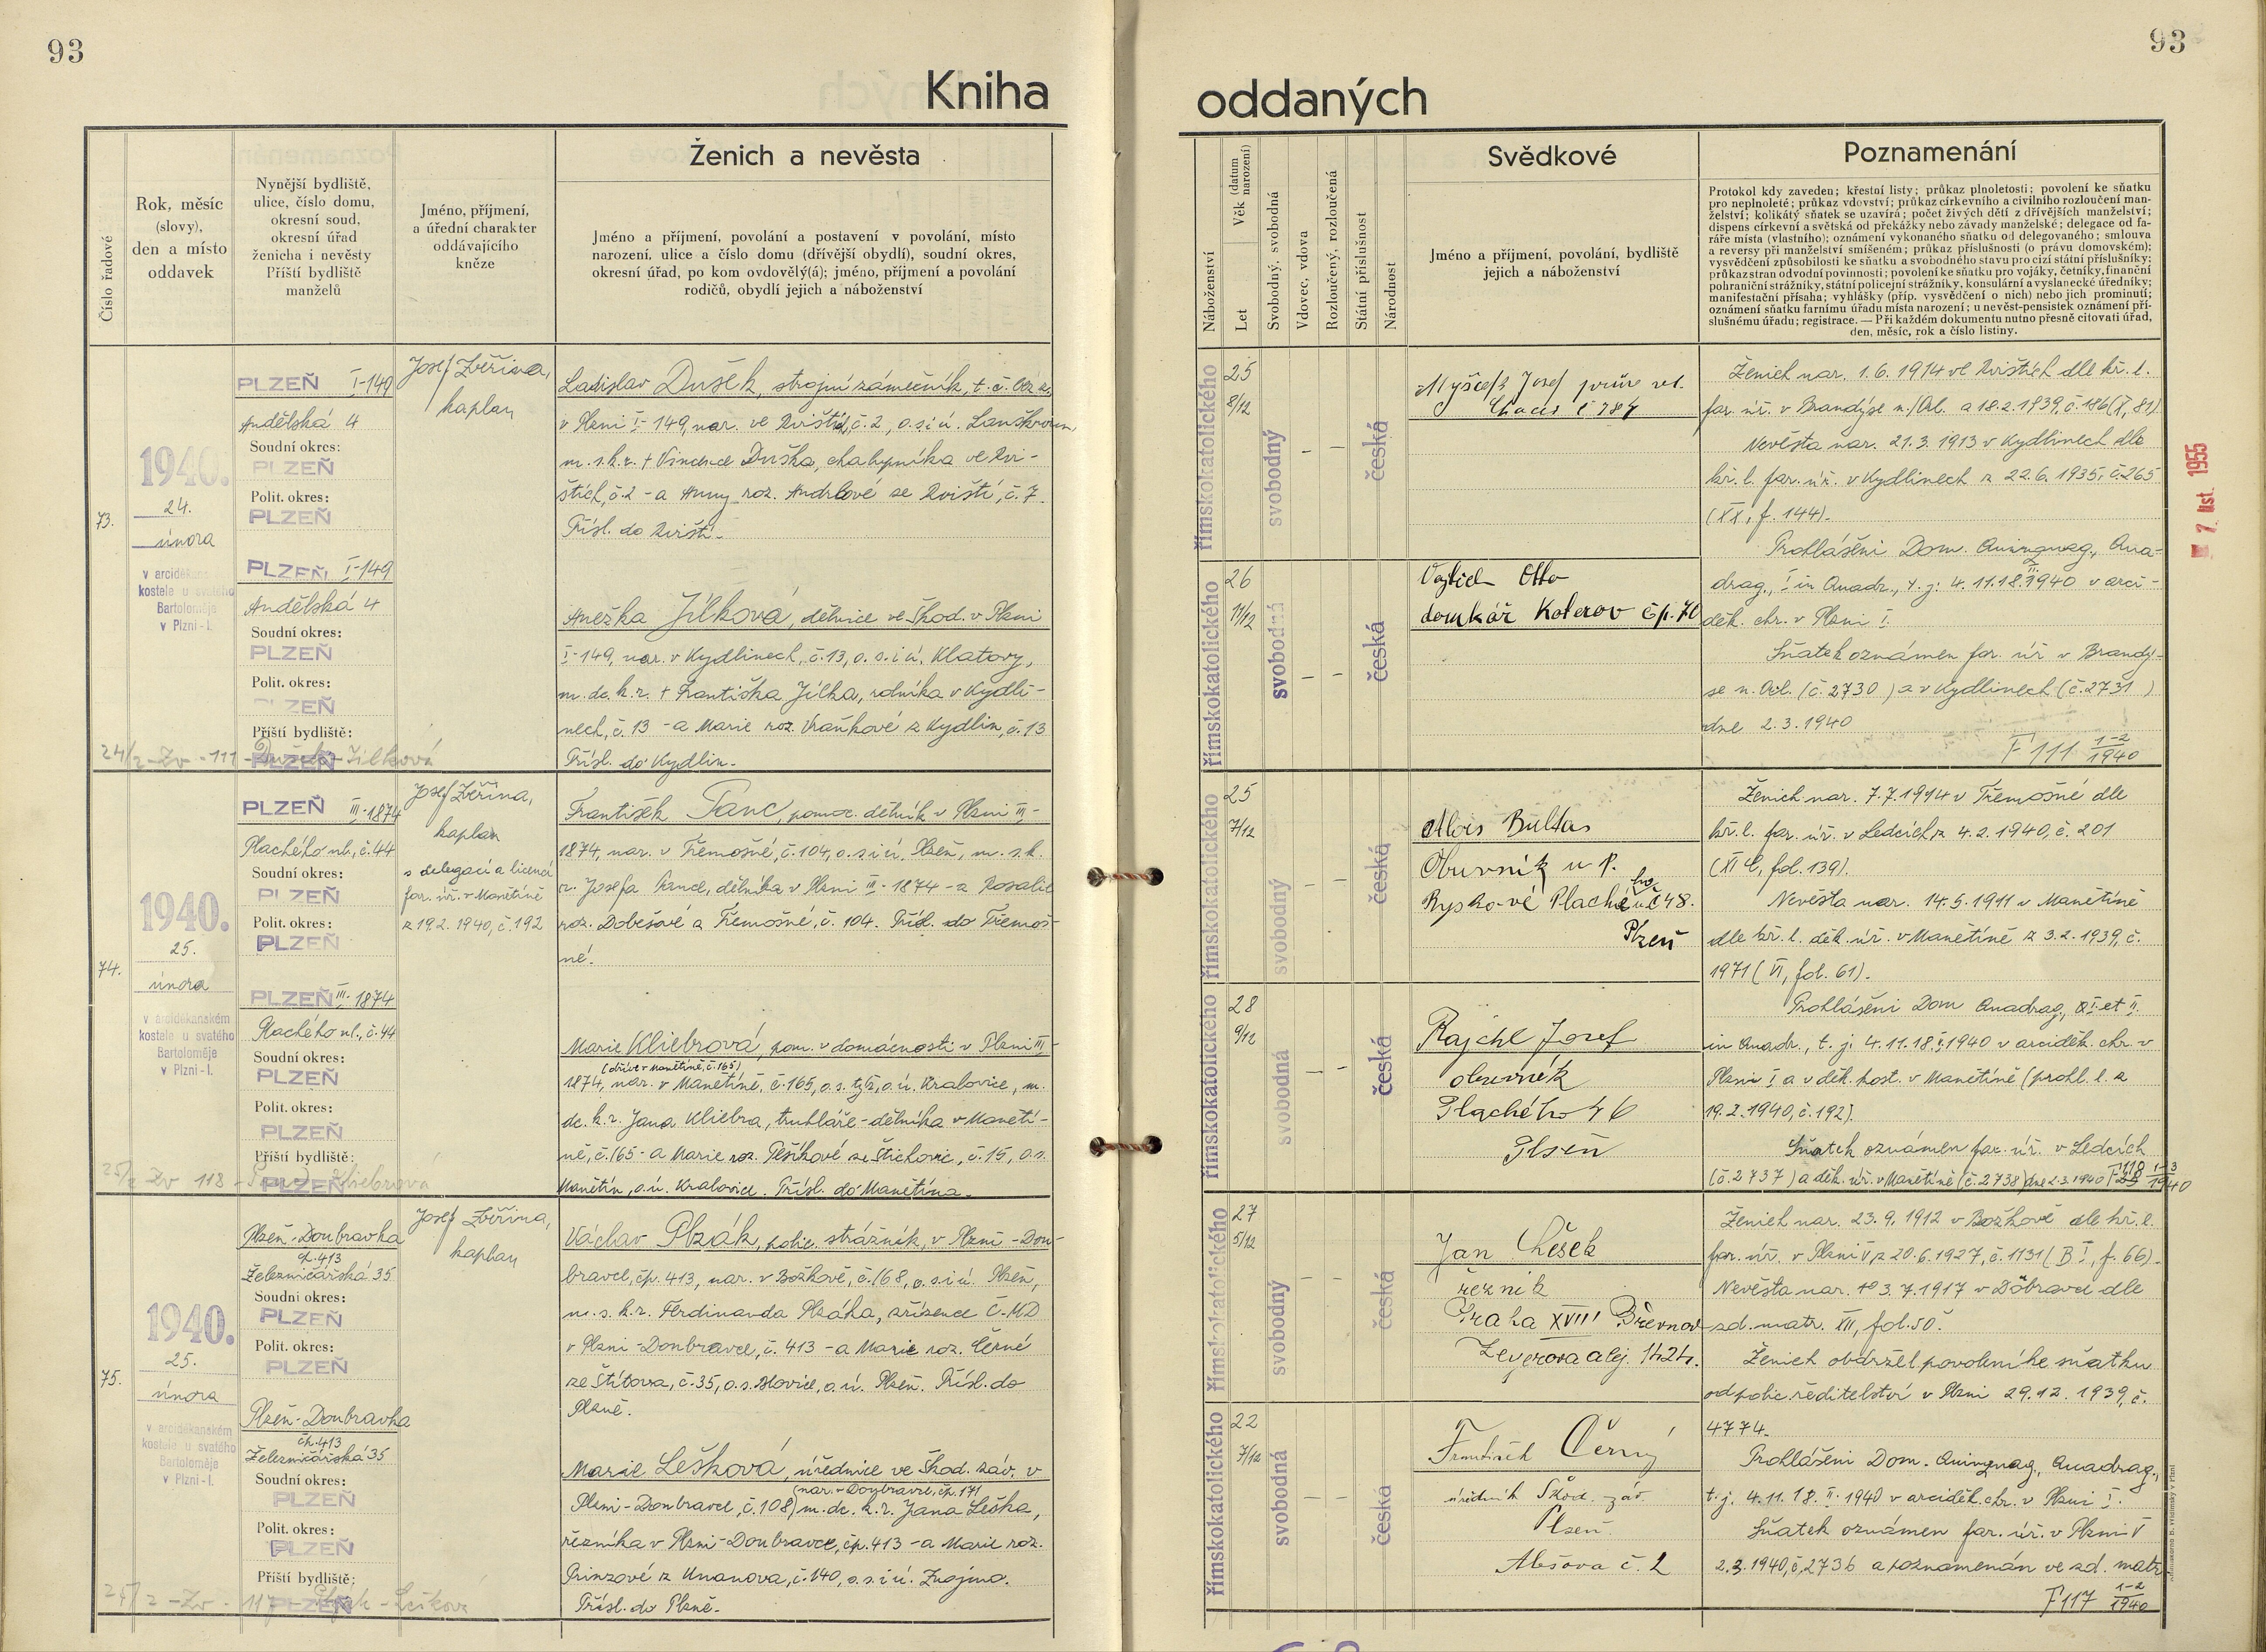 93
Kniha
Číslo řadové
Rok, měsíc
(slovy),
den a místo
oddavek
Nynější bydliště,
ulice, číslo domu,
okresní soud,
okresní úřad
ženicha i nevěsty
Příští bydliště
manželů
Jméno, příjmení,
a úřední charakter
oddávajícího
kněze
Ženich a nevěsta
Jméno a příjmení, povolání a postavení v povolání, místo
narození, ulice a číslo domu (dřívější obydlí), soudní okres,
okresní úřad, po kom ovdovělý(á); jméno, příjmení a povolání
rodičů, obydlí jejich a náboženství
73.
1940.
24.
února
v arciděkans
kostele u svatého
Bartoloměje
v Plzni-I.
PLZEŇ I-149
Andělská 4
Soudní okres:
PLZEŇ
Polit. okres:
PLZEŇ
PLZEŇ I-149
Andělská 4
Soudní okres:
PLZEŇ
Polit. okres:
PLZEŇ
Příští bydliště:
PLZEŇ
24/2 - Zv - 111 - Dušek - Jílková
Josef Zvěřina,
kaplan
Ladislav Dušek, strojní zámečník, t. č.
v Plzni I-149, nar. ve Zvíští, č. 2, o. s. i ú. Lanškroun,
m. s. k. r. + Vincence Duška, chalupníka ve Zví-
štích, č. 2 - a Anny roz. Andrlové ze Zvíští, č. 7.
Přísl. do Zvíští.
Anežka Jílková, dělnice ve Škod. v Plzni
I-149, nar. v Kydlinech, č. 13, o. s. i ú. Klatovy,
m. dc. k. r. + Františka Jílka, rolníka v Kydli-
nech, č. 13 - a Marie roz. Vraňkové z Kydlin, č. 13
Přísl. do Kydlin.
74.
1940.
25.
února
v arciděkanském
kostele u svatého
Bartoloměje
v Plzni-I.
PLZEŇ III-1874
Plachého ul., č. 44
Soudní okres:
PLZEŇ
Polit. okres:
PLZEŇ
PLZEŇ III-1874
Plachého ul., č. 44
Soudní okres:
PLZEŇ
Polit. okres:
PLZEŇ
Příští bydliště:
PLZEŇ
25/2 Zv 118 - Kliebrová
Josef Zvěřina,
kaplan
s delegací a licencí
far. úř. v Manětíně
z 19.2. 1940, č. 192
František Tanc, pomoc. dělník v Plzni III-
1874, nar. v Třemošné, č. 104, o. s. i ú. Plzeň, m. s. k.
r. Josefa Tance, dělníka v Plzni III-1874 - a Rosalie
roz. Dobešové z Třemošné, č. 104. Přísl. do Třemoš-
né.
Marie Kliebrová, pom. v domácnosti v Plzni III,
(dříve v Manětíně, č. 165)
1874, nar. v Manětíně, č. 165, o. s. týž, o. ú. Kralovice, m.
dc. k. r. Jana Kliebra, truhláře-dělníka v Manětí-
ně, č. 165 - a Marie roz. Plšíkové ze Štichovic, č. 15, o. s.
Manětín, o. ú. Kralovice. Přísl. do Manětína.
75.
1940.
25.
února
v arciděkanském
kostele u svatého
Bartoloměje
v Plzni-I.
Plzeň-Doubravka
čp. 413
Železničářská 35
Soudní okres:
PLZEŇ
Polit. okres:
PLZEŇ
Plzeň-Doubravka
čp. 413
Železničářská 35
Soudní okres:
PLZEŇ
Polit. okres:
PLZEŇ
Příští bydliště:
PLZEŇ
25/2 - Zv - 117 - Plzák - Lešková
Josef Zvěřina,
kaplan
Václav Plzák, polic. strážník, v Plzni-Dou-
bravce, čp. 413, nar. v Božkově, č. 168, o. s. i ú. Plzeň,
m. s. k. r. Ferdinanda Plzáka, zřízence Č-MD
v Plzni-Doubravce, č. 413 - a Marie roz. Černé
ze Štítova, č. 35, o. s. Blovice, o. ú. Plzeň. Přísl. do
Plzně.
Marie Lešková, úřednice ve Škod. záv. v
(nar. v Doubravce, čp. 171
Plzni-Doubravce, č. 108) m. dc. k. r. Jana Leška,
řezníka v Plzni-Doubravce, čp. 413 - a Marie roz.
Prinzové z Unanova, č. 140, o. s. i ú. Znojmo.
Přísl. do Plzně.
93
oddaných
Náboženství
Věk (datum narození)
Let
Svobodný, svobodná
Vdovec, vdova
Rozloučený, rozloučená
Státní příslušnost
Národnost
Svědkové
Jméno a příjmení, povolání, bydliště
jejich a náboženství
Poznamenání
Protokol kdy zaveden; křestní listy; průkaz plnoletosti; povolení ke sňatku
pro neplnoleté; průkaz vdovství; průkaz církevního a civilního rozloučení man-
želství; kolikátý sňatek se uzavírá; počet živých dětí z dřívějších manželství;
dispens církevní a světská od překážky nebo závady manželské; delegace od fa-
ráře místa (vlastního); oznámení vykonaného sňatku od delegovaného; smlouva
a reversy při manželství smíšeném; průkaz příslušnosti (o právu domovském);
vysvědčení způsobilosti ke sňatku a svobodného stavu pro cizí státní příslušníky;
průkaz stran odvodní povinnosti; povolení ke sňatku pro vojáky, četníky, finanční
pohraniční strážníky, státní policejní strážníky, konsulární a vyslanecké úředníky;
manifestační přísaha; vyhlášky (příp. vysvědčení o nich) nebo jich prominutí;
oznámení sňatku farnímu úřadu místa narození; u nevěst-pensistek oznámení pří-
slušnému úřadu; registrace. — Při každém dokumentu nutno přesně citovati úřad,
den, měsíc, rok a číslo listiny.
římskokatolického
25
8/12
svobodný
- -
česká
Josef
č 784
Ženich nar. 1.6. 1914 ve Zvíštích dle kř. l.
far. úř. v Brandýse n./Orl. z 18.2.1939, č. 186 (X, 81).
Nevěsta nar. 21.3. 1913 v Kydlinech dle
kř. l. far. úř. v Kydlinech z 22.6. 1935, č. 265
(XX, f. 144).
římskokatolického
26
11/12
svobodná
- -
česká
Vojtěch Otto
domkář Koterov čp. 70
Prohlášeni Dom. Quinquag., Qua-
drag., I in Quadr., t. j. 4. 11. 18. II. 1940 v arci-
děk. chr. v Plzni I.
Sňatek oznámen far. úř v Brandý-
se n. Orl. (č. 2730) a v Kydlinech (č. 2731)
dne 2.3. 1940
F 111 1-2/1940
7. list. 1955
římskokatolického
25
7/12
svobodný
- -
česká
Alois Bultas
Obuvník u p.
Ryskové Plachého uč 48.
Plzeň
Ženich nar. 7.7. 1914 v Třemošné dle
kř. l. far. úř. v Ledcích z 4.2. 1940, č. 201
(XI C, fol. 139).
Nevěsta nar. 14.5. 1911 v Manětíně
dle kř. l. děk. úř. v Manětíně z 3.2. 1939, č.
1971 (VI, fol. 61).
římskokatolického
28
9/12
svobodná
- -
česká
Rajchl Josef
obuvník
Plachého 46
Plzeň
Prohlášeni Dom Quadrag., I et II
in Quadr., t. j. 4. 11. 18. II. 1940 v arciděk. chr. v
Plzni I a v děk. kost. v Manětíně (prohl. l. z
19.2. 1940, č. 192).
Sňatek oznámen far. úř. v Ledcích
(č. 2737) a děk. úř. v Manětíně (č. 2738) dne 2.3. 1940 F 118 1-3/1940
římskokatolického
27
5/12
svobodný
- -
česká
Jan Lešek
řezník
Praha XVIII Břevnov
Zeyerova alej 1424.
Ženich nar. 23.9. 1912 v Božkově dle kř. l.
far. úř. v Plzni V z 20.6. 1927, č. 1131 (B I, f. 66).
Nevěsta nar. 3.7. 1917 v Doubravce dle
zd. matr. XII, fol. 50.
Ženich obdržel povolení ke sňatku
od polic. ředitelství v Plzni 29.12. 1939, č.
4774.
římskokatolického
22
7/12
svobodná
- -
česká
František Černý
úředník Škod. záv.
Plzeň
Alešova č. 2
Prohlášeni Dom. Quinquag., Quadrag.,
t. j. 4. 11. 18. II. 1940 v arciděk. chr. v Plzni I.
Sňatek oznámen far. úř. v Plzni V
2.3. 1940, č. 2736 a poznamenán ve zd. matr.
F 117 1-2/1940